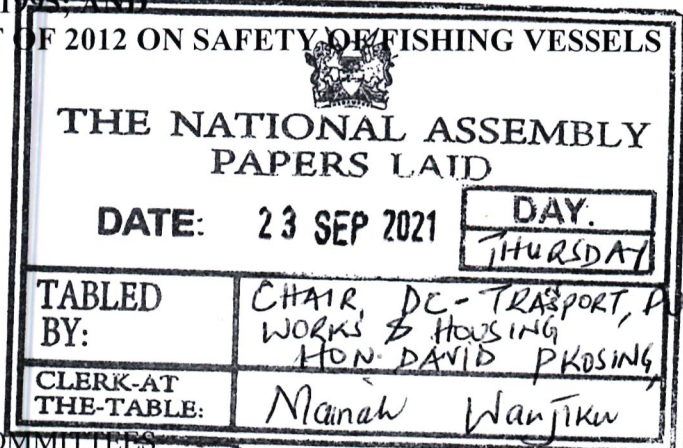 1995; AND
OF 2012 ON SAFETY OF FISHING VESSELS
THE NATIONAL ASSEMBLY
PAPERS LAID
DATE: 23 SEP 2021
DAY.
THURSDAY
TABLED BY:
CHAIR, DC-TRASPORT, PU
WORKS & HOUSING
HON. DAVID PKOSING,
CLERK-AT THE-TABLE:
Wanjiku